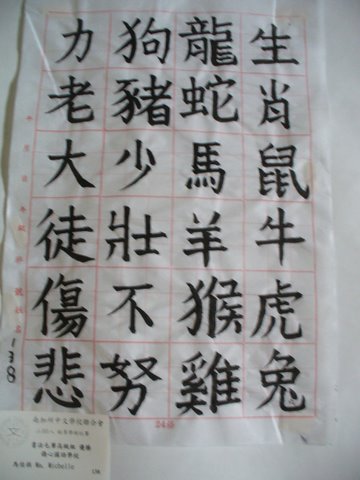 生肖鼠牛虎兔
龍蛇馬羊猴雞
狗豬少壯不努
力老大徒傷悲
138
南加州中文學校聯合會
Ma, Michelle